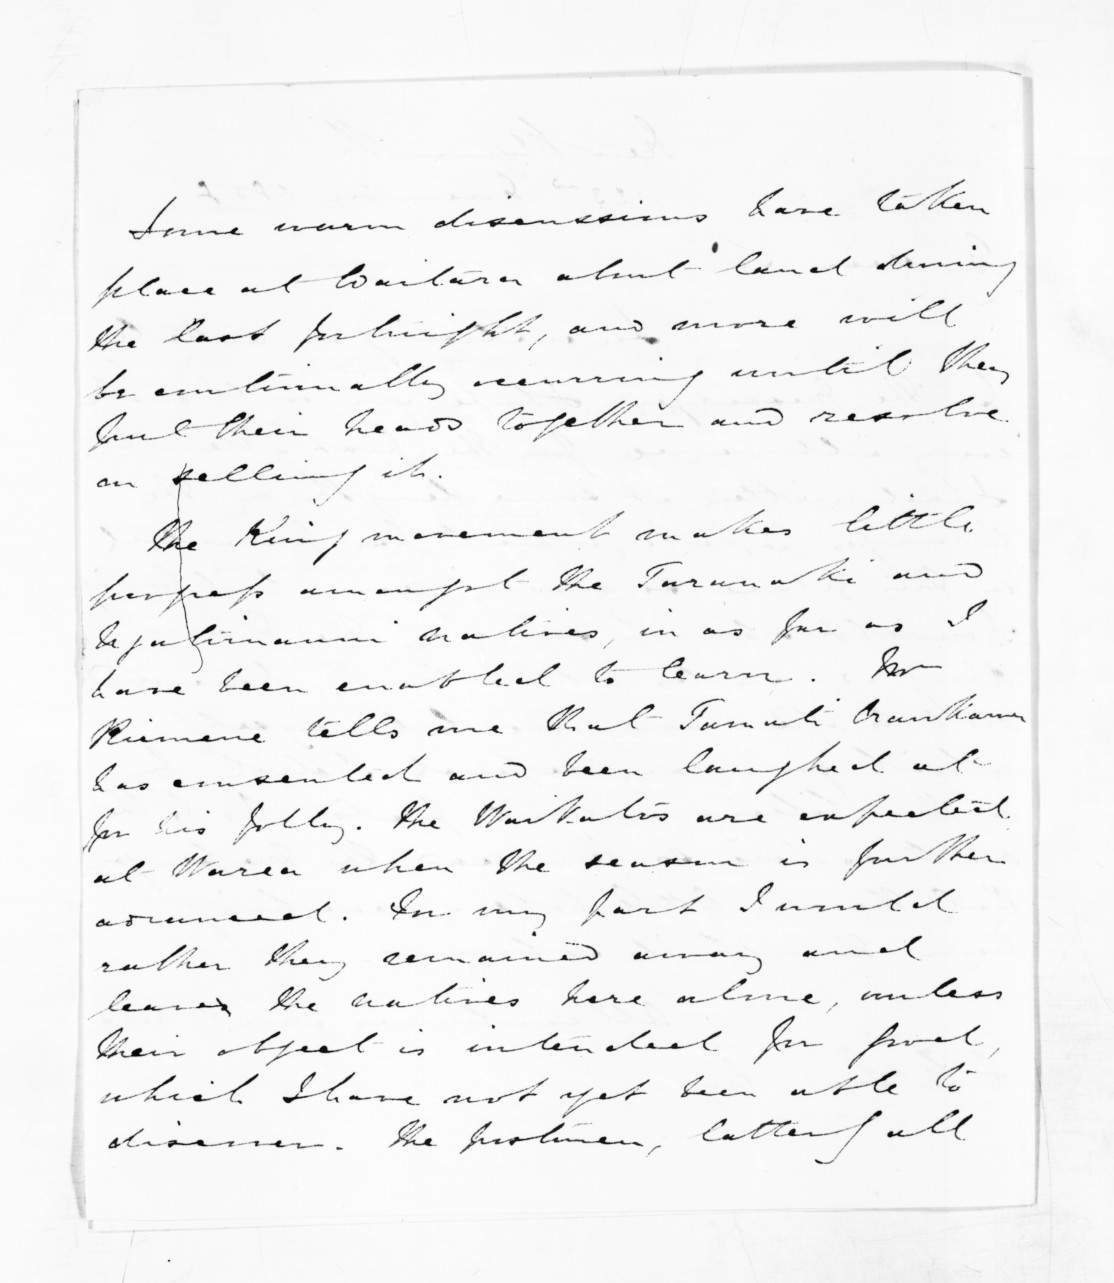 Some warm discussions have taken
place at Waitara about land during
the last fortnight, and more will
be continually occurring until they
put their heads together and resolve
on selling it.
The King movement makes little
progress amongst the Taranaki and
Ngatiruanui natives, in as far as I
have been enabled to learn. Mr
Riemene tells me that Tamati
has consented and been laughed at
for his folly. The Waikatos are expected
at Warea when the season is further
advanced. For my part I would
rather they remained away and
leave the natives here alone, unless
their object is intended for good,
which I have not yet been able to
discover. The postmen, latterly all